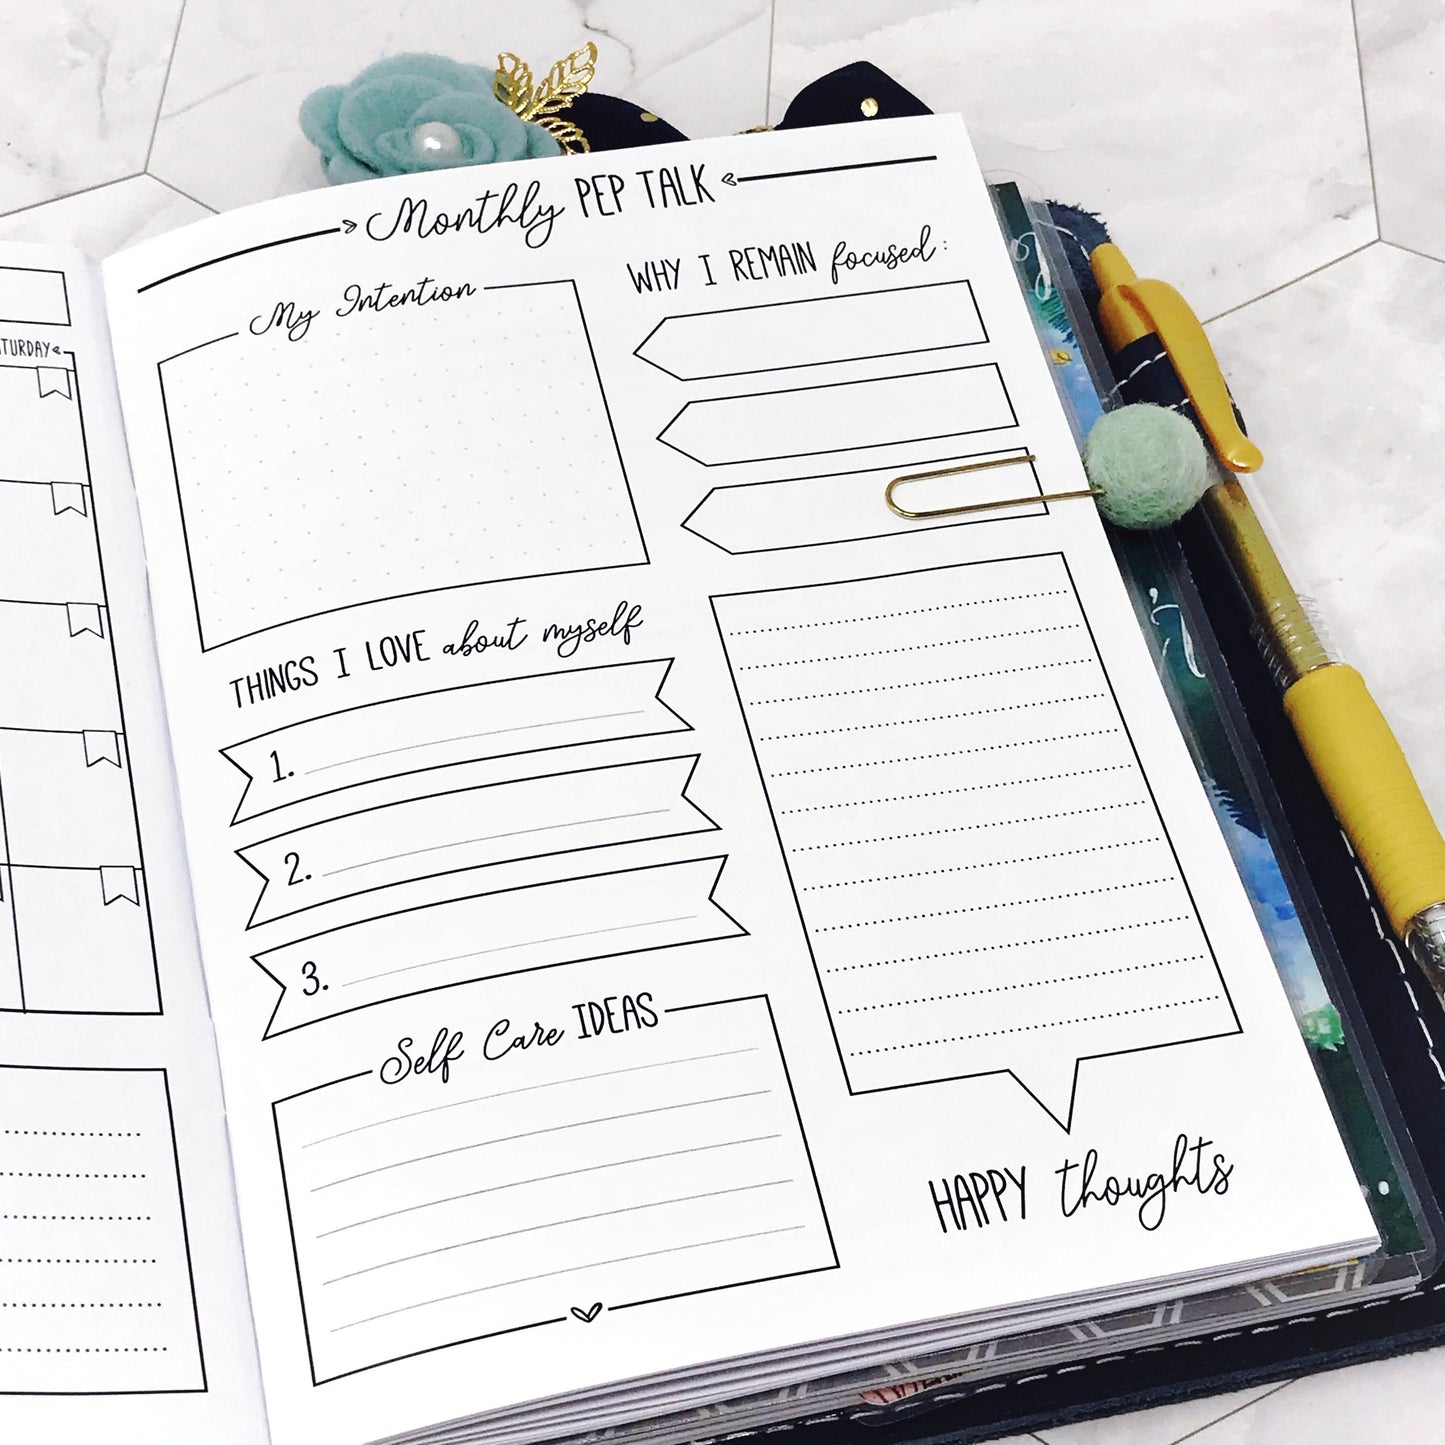 Monthly PEP TALK
My Intention
WHY I REMAIN focused:
THINGS I LOVE about myself
1.
2.
3.
Self Care IDEAS
HAPPY thoughts